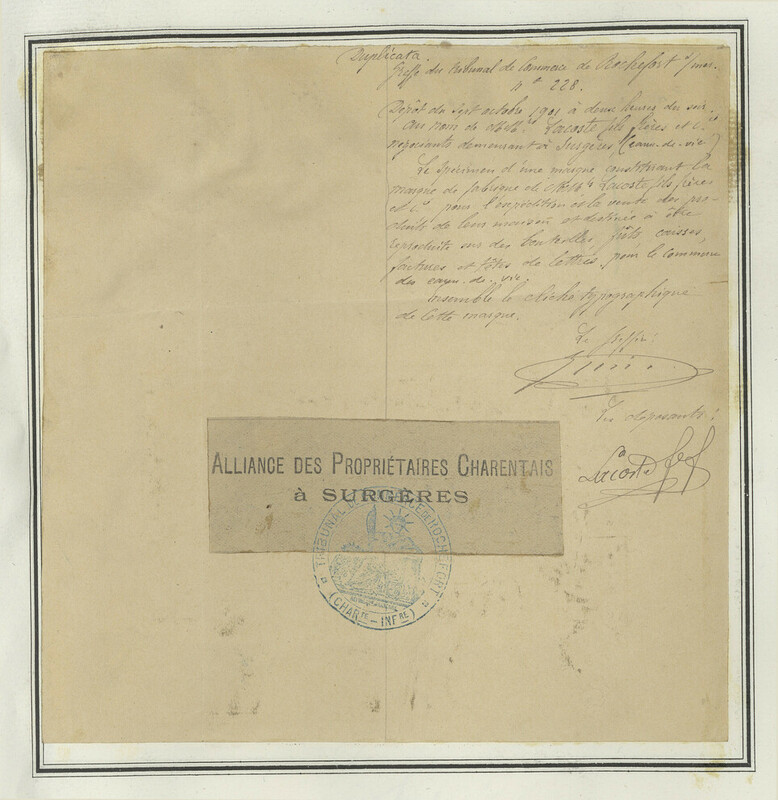 Duplicata
Greffe du tribunal de Commerce de Rochefort s/mer.
n° 228.
Dépôt du sept octobre 1901 à deux heures du soir.
Au nom de MM. Lacoste fils frères et Cie
négociants demeurant à Surgères (eaux-de-vie)
Le spécimen d'une marque constituant la
marque de fabrique de MM. Lacoste fils frères
et Cie pour l'expédition et la vente des pro-
duits de leur maison et destinée à être
reproduite sur des bouteilles, fûts, caisses,
factures et têtes de lettres pour le commerce
des eaux-de-vie.
Ensemble le cliché typographique
de cette marque.
Le Greffier:
Les déposants:
Lacoste
ALLIANCE DES PROPRIÉTAIRES CHARENTAIS
à SURGÈRES
TRIBUNAL DE COMMERCE DE ROCHEFORT
(CHARTE-INFRE)